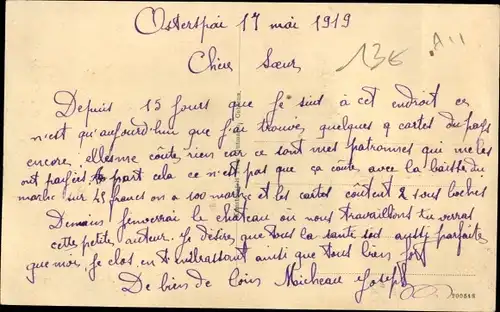 Osterspai 17 mai 1919
13€ A11
Chère Sœur
Depuis 15 jours que je suis à cet endroit ce
n'est qu'aujourd'hui que j'ai trouvé quelques cartes du pays
encore elles me coûte rien car ce sont mes patronnes qui me les
ont part cela ce n'est pas que ça coûte avec la baisse du
mark sur 45 francs on a 100 marks et les cartes coûtent 2 sous boches
Demain j'enverrai le château où nous travaillons tu verras
cette petite auteur. Je désire que tous la santé soit aussi parfaite
que moi. Je clos en t'embrassant ainsi que tous bien fort
De bien de loin Micheau Joseph